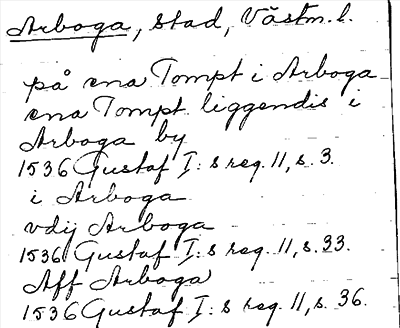 Arboga, stad, Västm. l.
på ena Tompt i Arboga
ena Tompt liggendis i
Arboga by
1536 Gustaf I: s reg. 11, s. 3.
i Arboga
vdij Arboga
1536 Gustaf I: s reg. 11, s. 33.
Aff Arboga
1536 Gustaf I: s reg. 11, s. 36.